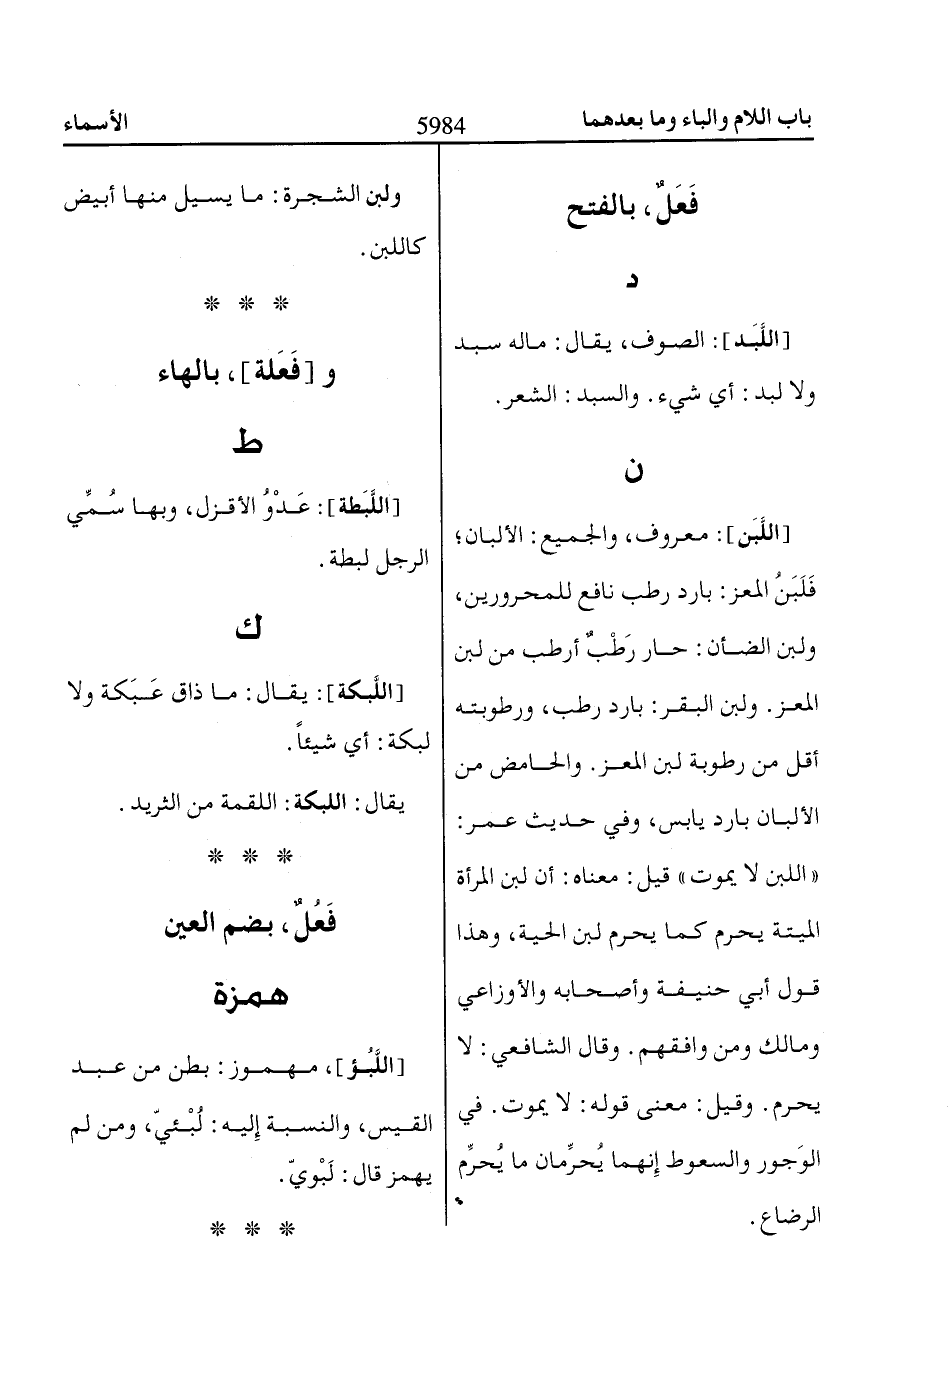 باب اللام والباء وما بعدهما
5984
الأسماء
فَعَلٌ، بالفتح
د
[اللَّبَد]: الصوف، يقال: ماله سبد
ولا لبد: أي شيء. والسبد: الشعر.
ن
[اللَّبَن]: معروف، والجميع: الألبان؛
فَلَبَنُ المعز: بارد رطب نافع للمحرورين،
ولبن الضأن: حار رَطْبٌ أرطب من لبن
المعز. ولبن البقر: بارد رطب، ورطوبته
أقل من رطوبة لبن المعز. والحامض من
الألبان بارد يابس، وفي حديث عمر:
«اللبن لا يموت» قيل: معناه: أن لبن المرأة
الميتة يحرم كما يحرم لبن الحية، وهذا
قول أبي حنيفة وأصحابه والأوزاعي
ومالك ومن وافقهم. وقال الشافعي: لا
يحرم. وقيل: معنى قوله: لا يموت. في
الوَجور والسعوط إِنهما يُحرِّمان ما يُحرِّم
الرضاع.
ولبن الشجرة: ما يسيل منها أبيض
كاللبن.
* * *
و [فَعَلة]، بالهاء
ط
[اللَّبَطة]: عَدْوُ الأقزل، وبها سُمِّي
الرجل لبطة.
ك
[اللَّبكة]: يقال: ما ذاق عَبَكة ولا
لبكة: أي شيئاً.
يقال: اللبكة: اللقمة من الثريد.
* * *
فَعُلٌ، بضم العين
همزة
[اللَّبُؤ]، مهموز: بطن من عبد
القيس، والنسبة إليه: لُبْئيّ، ومن لم
يهمز قال: لَبْويّ.
* * *